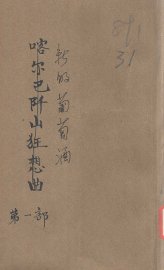 喀尔巴阡山狂想曲
新的葡萄酒
第一部
891
31